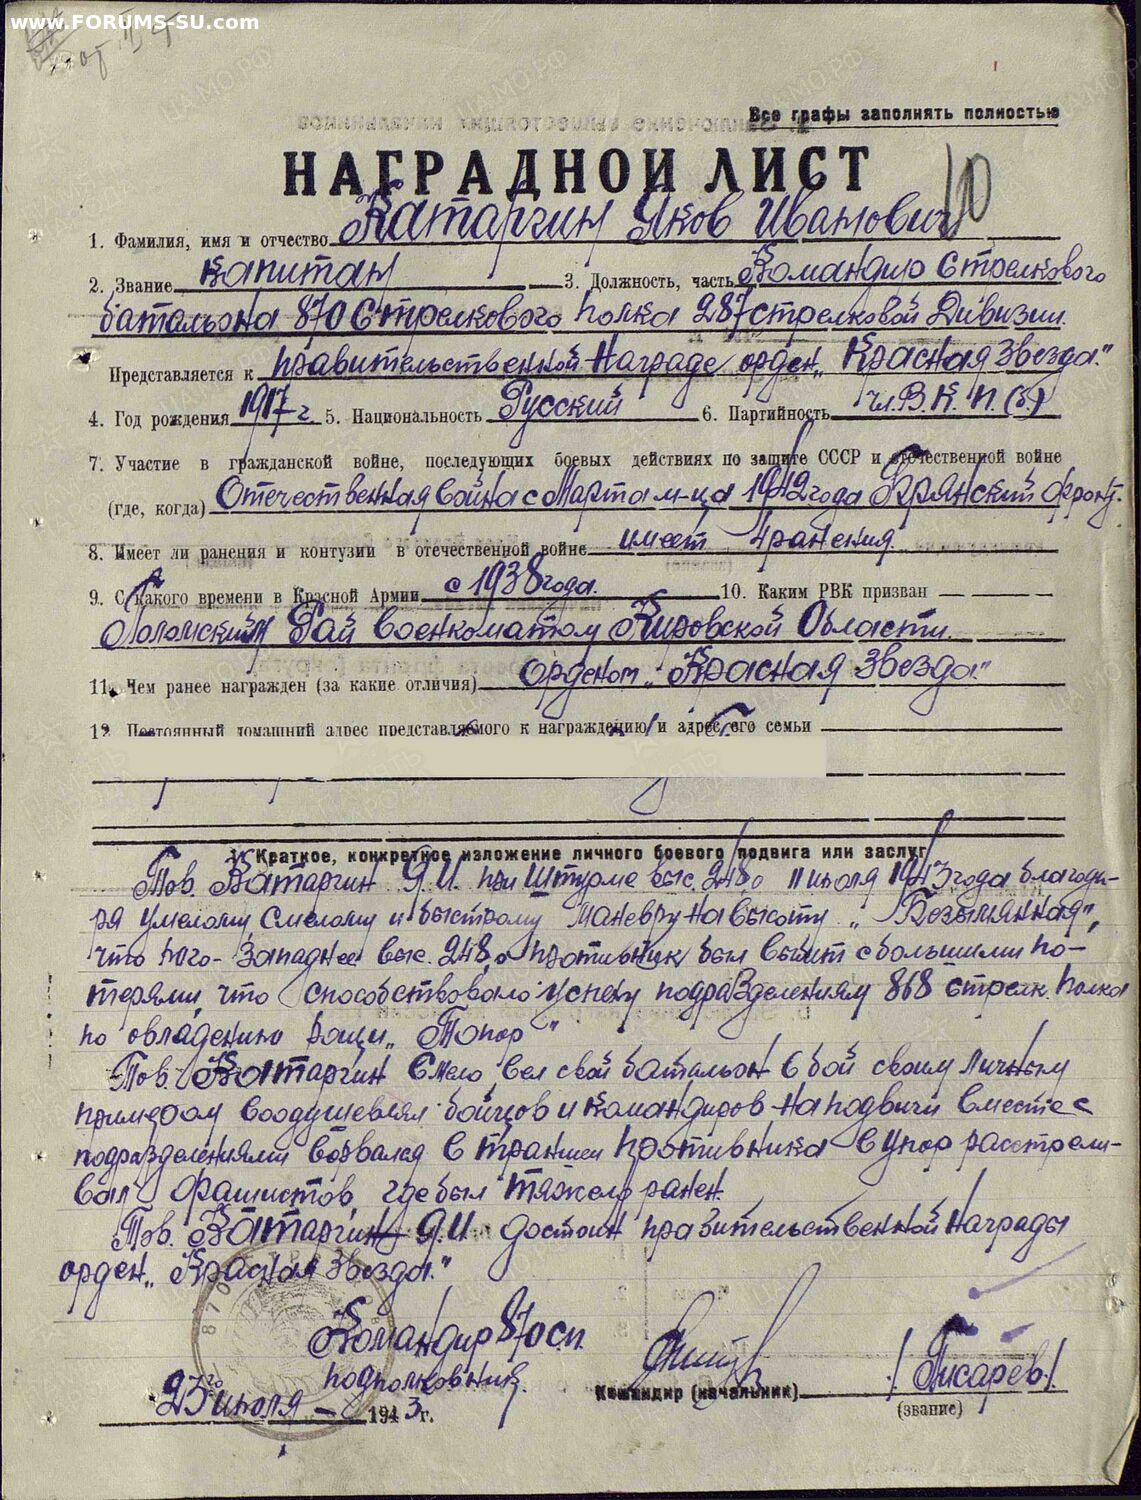 www.FORUMS-SU.com
Все графы заполнять полностью
НАГРАДНОЙ ЛИСТ
10
1. Фамилия, имя и отчество Катаргин Яков Иванович
2. Звание капитан 3. Должность, часть Командир Стрелкового
батальона 870 Стрелкового полка 287 стрелковой Дивизии.
Представляется к правительственной Награде орден „Красная звезда."
4. Год рождения 1917 г 5. Национальность Русский 6. Партийность чл. В.К.П.(б)
7. Участие в гражданской войне, последующих боевых действиях по защите СССР и отечественной войне
(где, когда) Отечественная война с Марта м-ца 1942 года Брянский фронт.
8. Имеет ли ранения и контузии в отечественной войне имеет 4 ранения.
9. С какого времени в Красной Армии с 1938 года. 10. Каким РВК призван
Рай военкоматом Кировской Области.
11. Чем ранее награжден (за какие отличия) Орденом „Красная звезда"
12. Постоянный домашний адрес представляемого к награждению и адрес его семьи
1. Краткое, конкретное изложение личного боевого подвига или заслуг
Тов. Катаргин Я.И. при Штурме выс. 248,0 11 июля 1943 года благода-
ря умелому смелому и быстрому Маневру на высоту „Безымянная",
что юго-Западнее выс. 248,0 противник был выбит с большими по-
терями, что способствовало успеху подразделениям 868 стрелк. полка
по овладению рощи „Топор"
Тов. Катаргин Смело вел свой батальон в бой своим личным
примером воодушевлял бойцов и командиров на подвиги вместе с
подразделениями ворвался в траншеи противника в упор расстрели-
вал фашистов, где был тяжело ранен.
Тов. Катаргин Я.И. достоин правительственной Награды
орден „Красная звезда."
Командир 870 сп.
подполковник.
Командир (начальник) /Писарев/
(звание)
23го июля 1943 г.